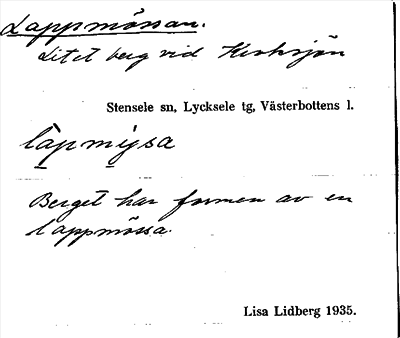 Lappmössan.
Litet berg vid Kerksjön
Stensele sn, Lycksele tg, Västerbottens l.
Berget har formen av en
lappmössa.
Lisa Lidberg 1935.